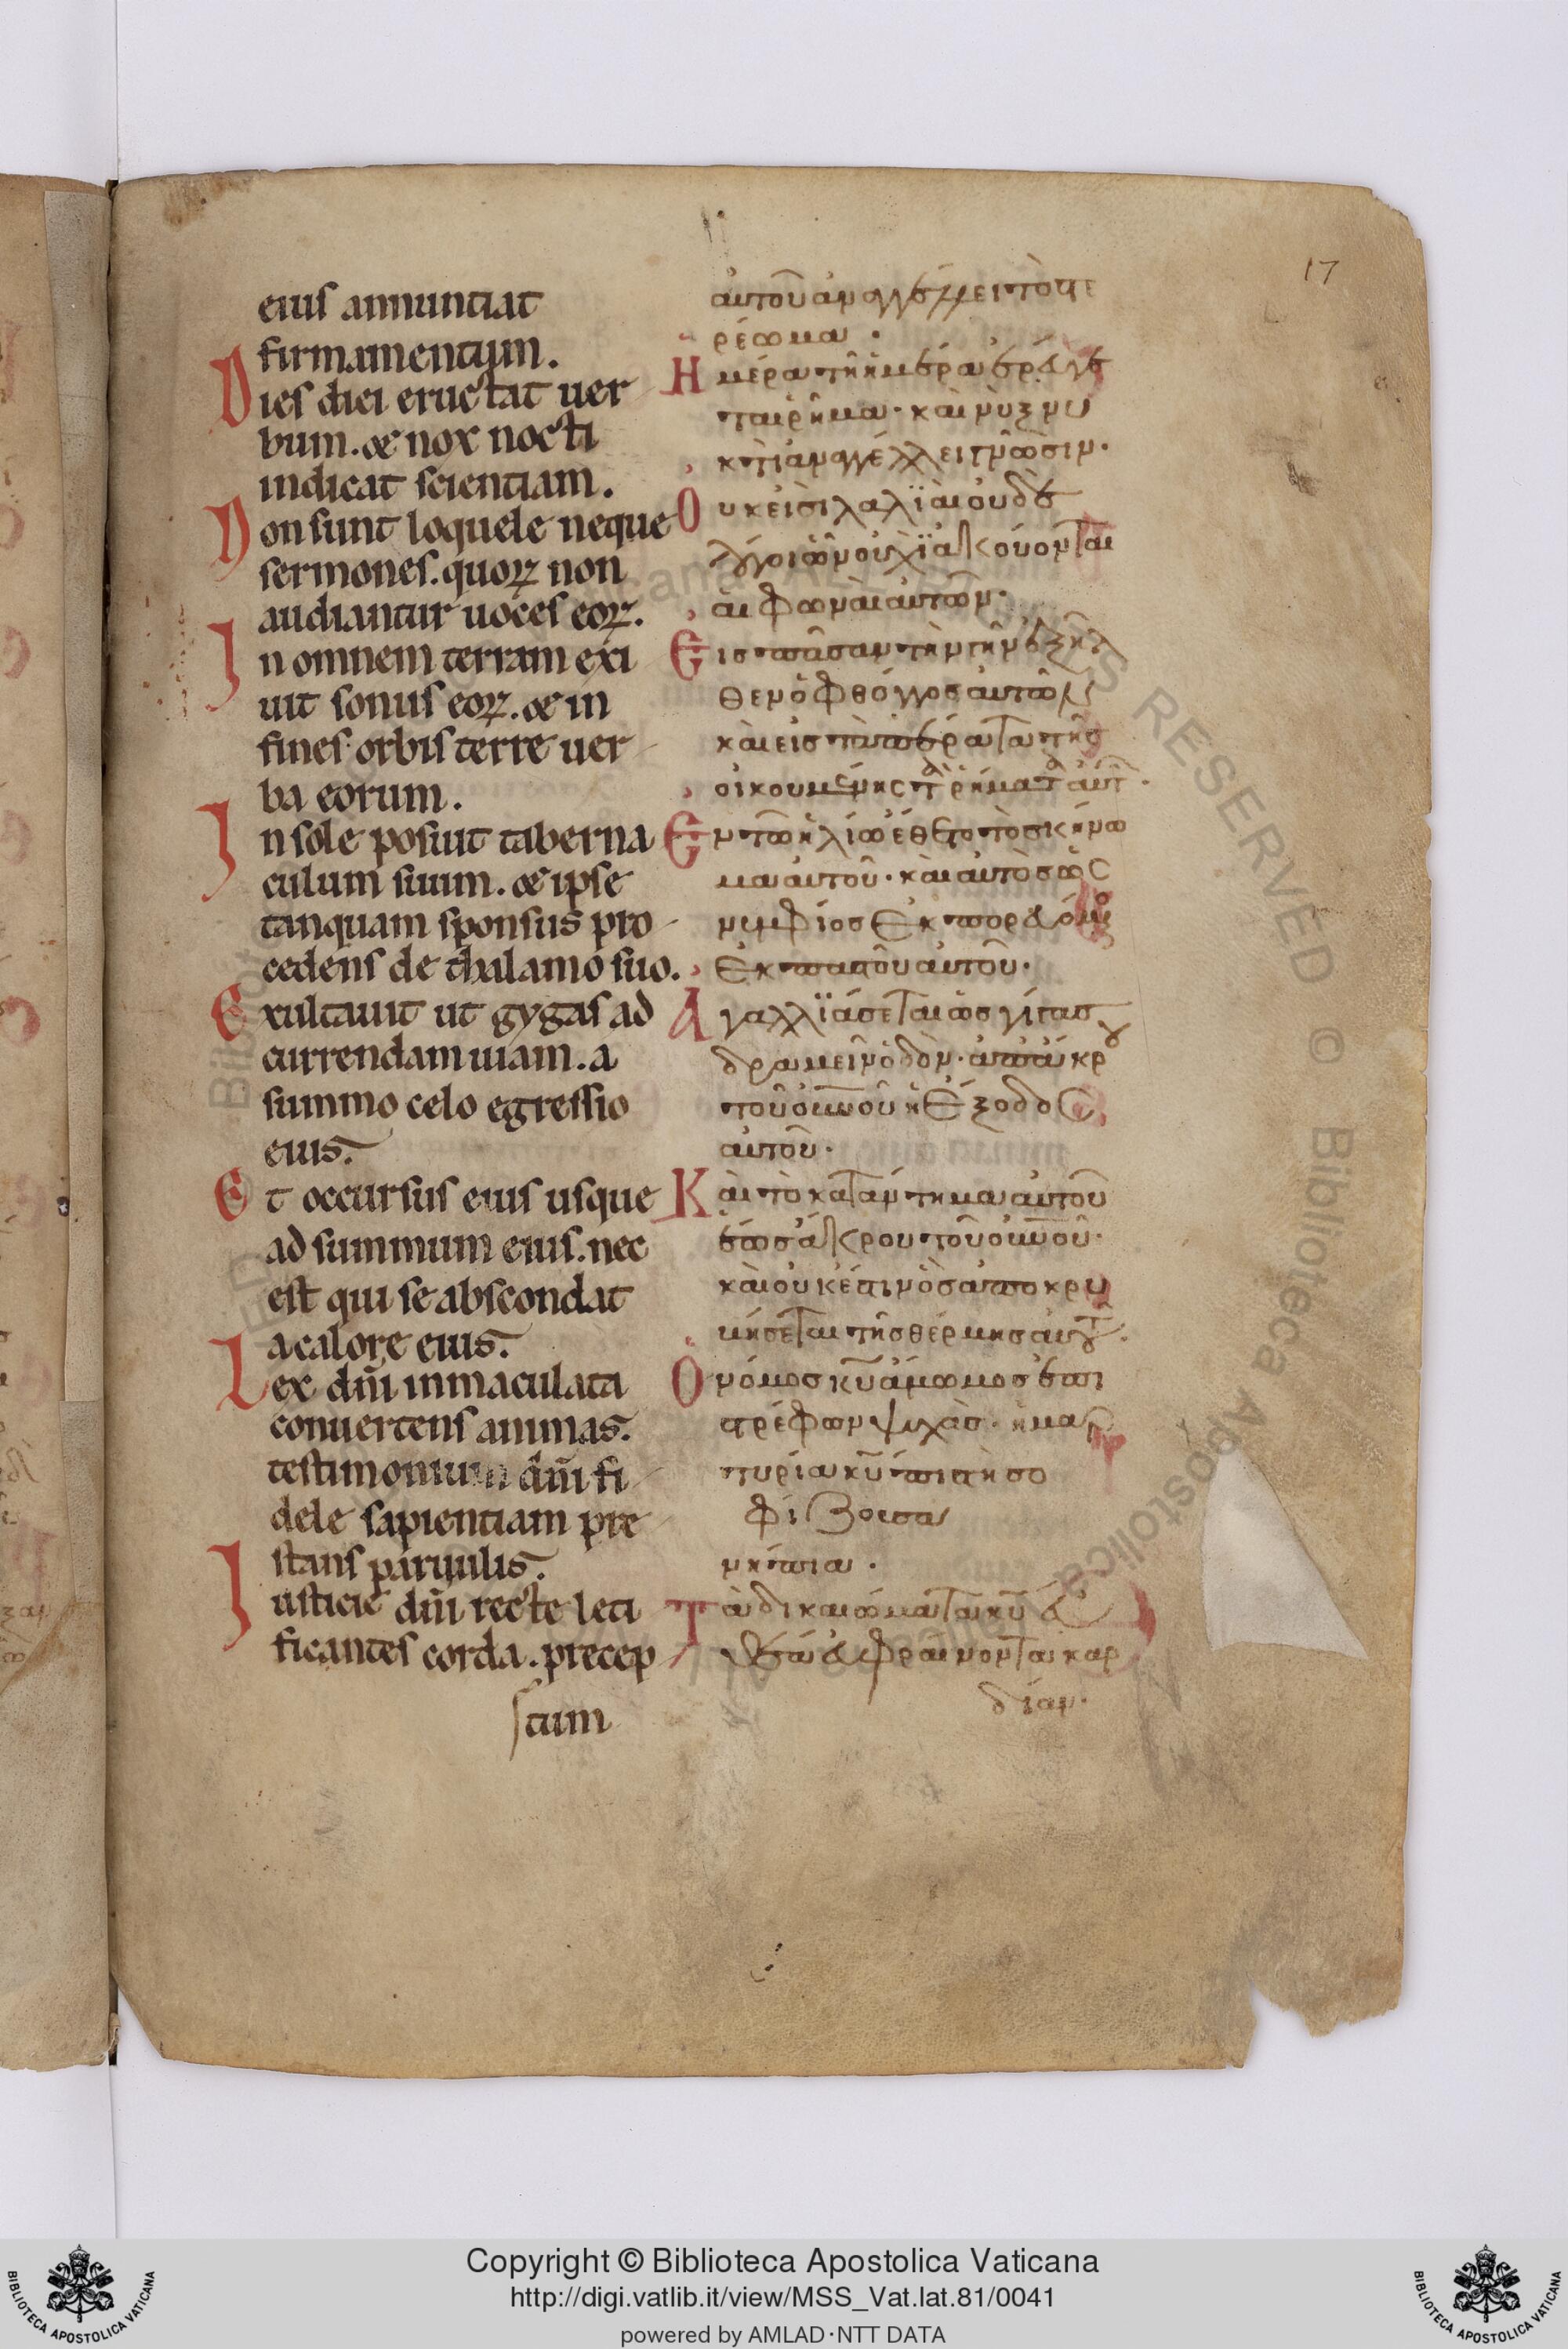 17
eius annuntiat
firmamentum.
Dies diei eructat uer
bum. & nox nocti
indicat scientiam.
Non sunt loquele neque
sermones. quoꝝ non
audiantur uoces eoꝝ.
In omnem terram exi
uit sonus eoꝝ. & in
fines orbis terre uer
ba eorum.
In sole posuit taberna
culum suum. & ipse
tanquam sponsus pro
cedens de thalamo suo.
Exultauit ut gygas ad
currendam uiam. a
summo celo egressio
eius.
Et occursus eius usque
ad summum eius. nec
est qui se abscondat
a calore eius.
Lex dn̄i inmaculata
conuertens animas.
testimonium dn̄i fi
dele sapientiam pre
stans paruulis.
Iusticie dn̄i recte leti
ficantes corda. precep
tum
αὐτοῦ ἀναγγέλλει τὸ στε
ρέωμα.
Ημέρα τῆ ἡμέρα ἐρεύγε
ται ῥῆμα. καὶ νὺξ νυ
κτὶ ἀναγγέλλει γνῶσιν.
Ουκ εἰσὶ λαλϊαὶ οὐδὲ
λόγοι ὧν οὐχϊ ἀκούονται
αἱ φωναὶ αὐτῶν.
Εις πᾶσαν τὴν γῆν ἐξῆλ
θεν ὁ φθόγγος αὐτῶν
καὶ εἰς τὰ πέρατα τῆς
οἰκουμένης τὰ ῥήματα αὐτ.
Εν τῶ ἡλίω ἔθετο τὸ σκήνω
μα αὐτοῦ. καὶ αὐτὸς ὡς
νυμφίος ἐκπορευόμενος
ἐκ παστοῦ αὐτοῦ.
Αγαλλϊάσεται ὡς γίγας
δραμεῖν ὁδὸν. ἀπ ἄκρου
τοῦ οὐνοῦ ἡ ἔξοδος
αὐτοῦ.
Καὶ τὸ κατάντημα αὐτοῦ
ἕως ἄκρου τοῦ οὐνοῦ.
καὶ οὐκ ἔστιν ὃς ἀποκρυ
βήσεται τῆς θέρμης αὐτοῦ.
Ο νόμος κῡ ἄμωμος ἐπι
στρέφων ψυχὰς. ἡ μαρ
τυρία κῡ πιστὴ σο
φίζουσα
νήπια.
Τὰ δικαιώματα κῡ εὐ
θέα εὐφραίνοντα καρ
δίαν.
Copyright © Biblioteca Apostolica Vaticana
http://digi.vatlib.it/view/MSS_Vat.lat.81/0041
powered by AMLAD·NTT DATA
BIBLIOTECA APOSTOLICA VATICANA
BIBLIOTECA APOSTOLICA VATICANA